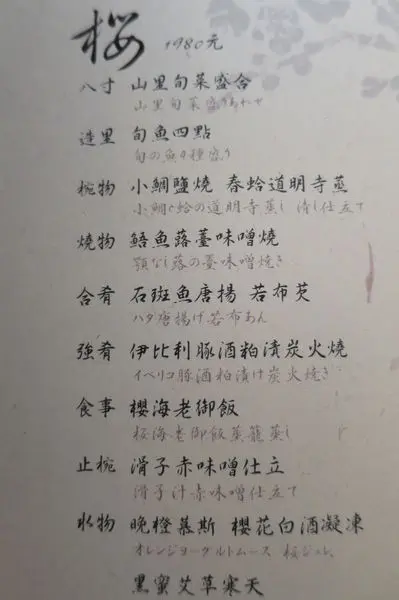 桜 1980元
八寸 山里旬菜盛合
山里旬菜盛り合わせ
造里 旬魚四點
旬の魚4種盛り
椀物 小鯛鹽燒 春蛤道明寺蒸
小鯛と蛤の道明寺蒸し 清し仕立て
燒物 鯃魚蕗薹味噌燒
顎なし蕗の薹味噌焼き
合肴 石斑魚唐揚 若布芡
ハタ唐揚げ 若布あん
強肴 伊比利豚酒粕漬炭火燒
イベリコ豚酒粕漬け炭火焼き
食事 櫻海老御飯
桜海老御飯蒸籠蒸し
止椀 滑子赤味噌仕立
滑子汁赤味噌仕立て
水物 晚橙慕斯 櫻花白酒凝凍
オレンジヨーグルトムース 桜ジュレ
黑蜜艾草寒天